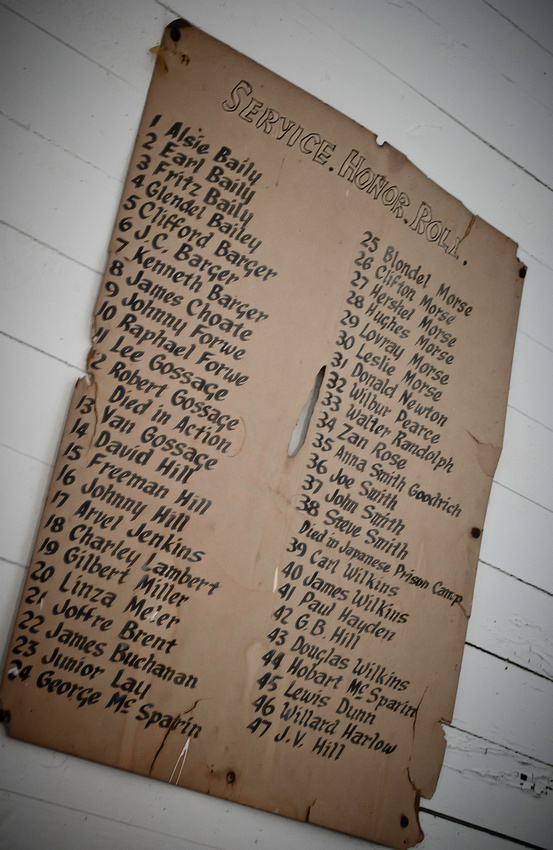 SERVICE. HONOR. ROLL.
1 Alsie Baily
2 Earl Baily
3 Fritz Baily
4 Glendel Bailey
5 Clifford Barger
6 J.C. Barger
7 Kenneth Barger
8 James Choate
9 Johnny Forwe
10 Raphael Forwe
11 Lee Gossage
12 Robert Gossage
Died in Action
13 Van Gossage
14 David Hill
15 Freeman Hill
16 Johnny Hill
17 Arvel Jenkins
18 Charley Lambert
19 Gilbert Miller
20 Linza Meier
21 Joffre Brent
22 James Buchanan
23 Junior Lay
24 George McSparin
25 Blondel Morse
26 Clifton Morse
27 Hershel Morse
28 Hughes Morse
29 Lovray Morse
30 Leslie Morse
31 Donald Newton
32 Wilbur Pearce
33 Walter Randolph
34 Zan Rose
35 Anna Smith Goodrich
36 Joe Smith
37 John Smith
38 Steve Smith
Died in Japanese Prison Camp
39 Carl Wilkins
40 James Wilkins
41 Paul Hayden
42 G.B. Hill
43 Douglas Wilkins
44 Hobart McSparin
45 Lewis Dunn
46 Willard Harlow
47 J.V. Hill